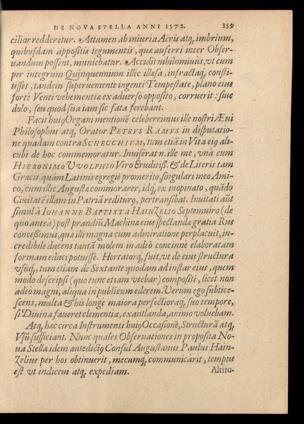 DE NOVA STELLA ANNI 1572. 359
cilior redderetur. Attamen ab iniuria Aeris atq, imbrium,
quibusdam appositis tegumentis, quæ auferri inter Obser-
uandum possent, muniebatur. Accidit nihilominus, vt cum
per integrum Quinquennium illic illæsa, infractaq, consti-
tisset, tandem superueniente ingenti Tempestate, plano eius
forte Venti vehementia ex aduerso opposito, corruerit: sine
dolo, seu quod sua tam sic fata ferebant.
Facit huius Organi mentionem celeberrimus ille nostri Æui
Philosophus atq, Orator PETRVS RAMVS in disputatio-
ne quadam contra SCHECCHIVM, tum etiam in Vita eiq ali-
cubi de hoc commemoratur. Inuiserat n. ille me, vnà cum
HIERONIMO WOLPHIO Viro Eruditiss. & de Literis tam
Græcis quàm Latinis egregiè promerito, singulari meo Ami-
co, cum illic Augustæ commorarer, idq, ex inopinato, quàdo
Ciuitatē illam in Patriā rediturus, pertransibat. Inuitati aūt
simul à IOHANNE BAPTISTA HAINZELIO Septemuiro (de
quo anteà) post prandiū Machinæ eius spectandæ gratia Rus
concessimus, qua illi magna cum admiratione perplacuit, in-
credibile ducens tantā molem in adeò concinnè elaboratam
formam educi potuisse. Hortatorq, fuit, vt de eius structura
vsuq, tum etiam de Sextante quodam ad instar eius, quem
modò descripsi (quo tunc etiam vtebar) compositi, licet non
adeò magni, aliquid in publicum ederem. Verùm ego subtice-
scens, multa & his longè maiora perfectioraq, suo tempore,
si Diuina faueret clementia, exantlanda, animo voluebam.
Atq, hæc circa Instrumenti huius Occasionē, Structurā atq,
Vsū sufficiant. Nunc quales Obseruationes in proposita No-
ua Stella idem antedictus Consul Augustanus Paulus Hain-
Zelius per hoc obtinuerit, mecumq, communicârit, tempus
est vt indicem atq, expediam.